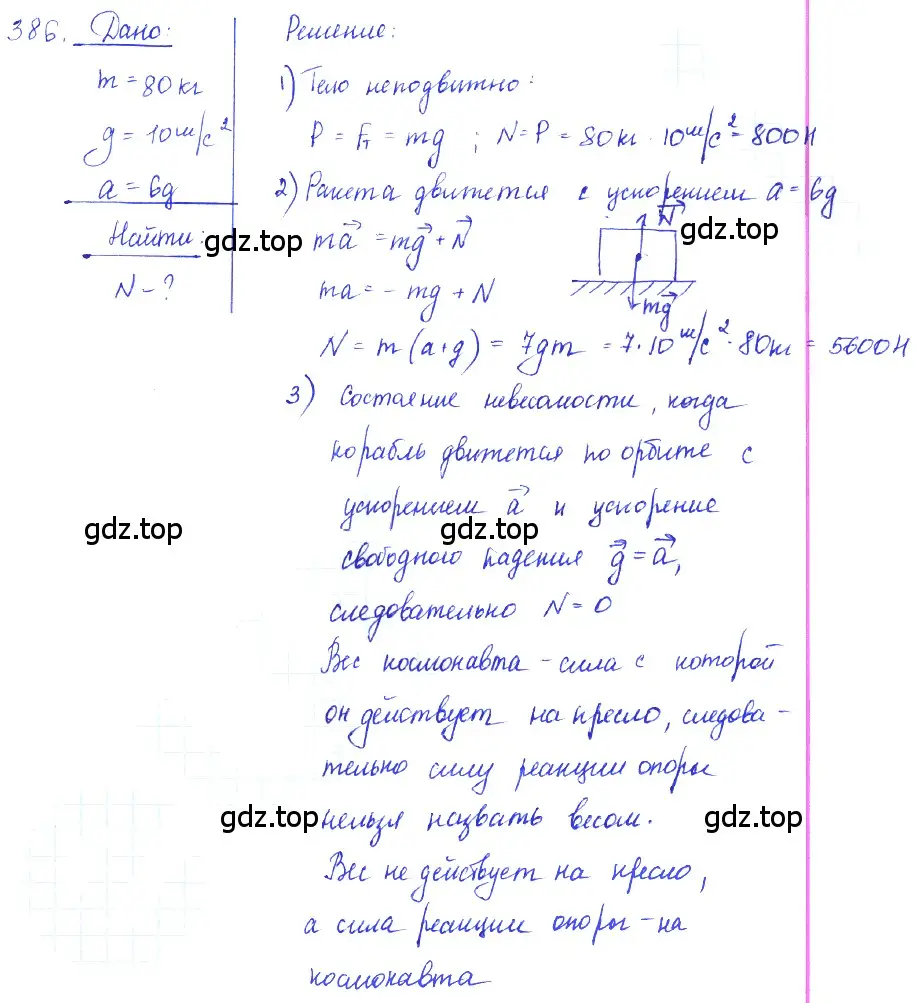 386. Дано:
m = 80 кг
g = 10 м/с²
a = 6g
Найти:
N - ?
Решение:
1) Тело неподвижно:
P = Fт = mg ; N = P = 80 кг · 10 м/с² = 800 Н
2) Ракета движется с ускорением a = 6g
ma⃗ = mg⃗ + N⃗
N⃗
mg⃗
ma = - mg + N
N = m (a+g) = 7gm = 7 · 10 м/с² · 80 кг = 5600 Н
3) Состояние невесомости, когда
корабль движется по орбите с
ускорением a⃗ и ускорение
свободного падения g⃗ = a⃗,
следовательно N = 0
Вес космонавта - сила с которой
он действует на кресло, следова-
тельно силу реакции опоры
нельзя назвать весом.
Вес не действует на кресло,
а сила реакции опоры - на
космонавта
gdz.top gdz.top
gdz.top gdz.top gdz.top
gdz.top gdz.top